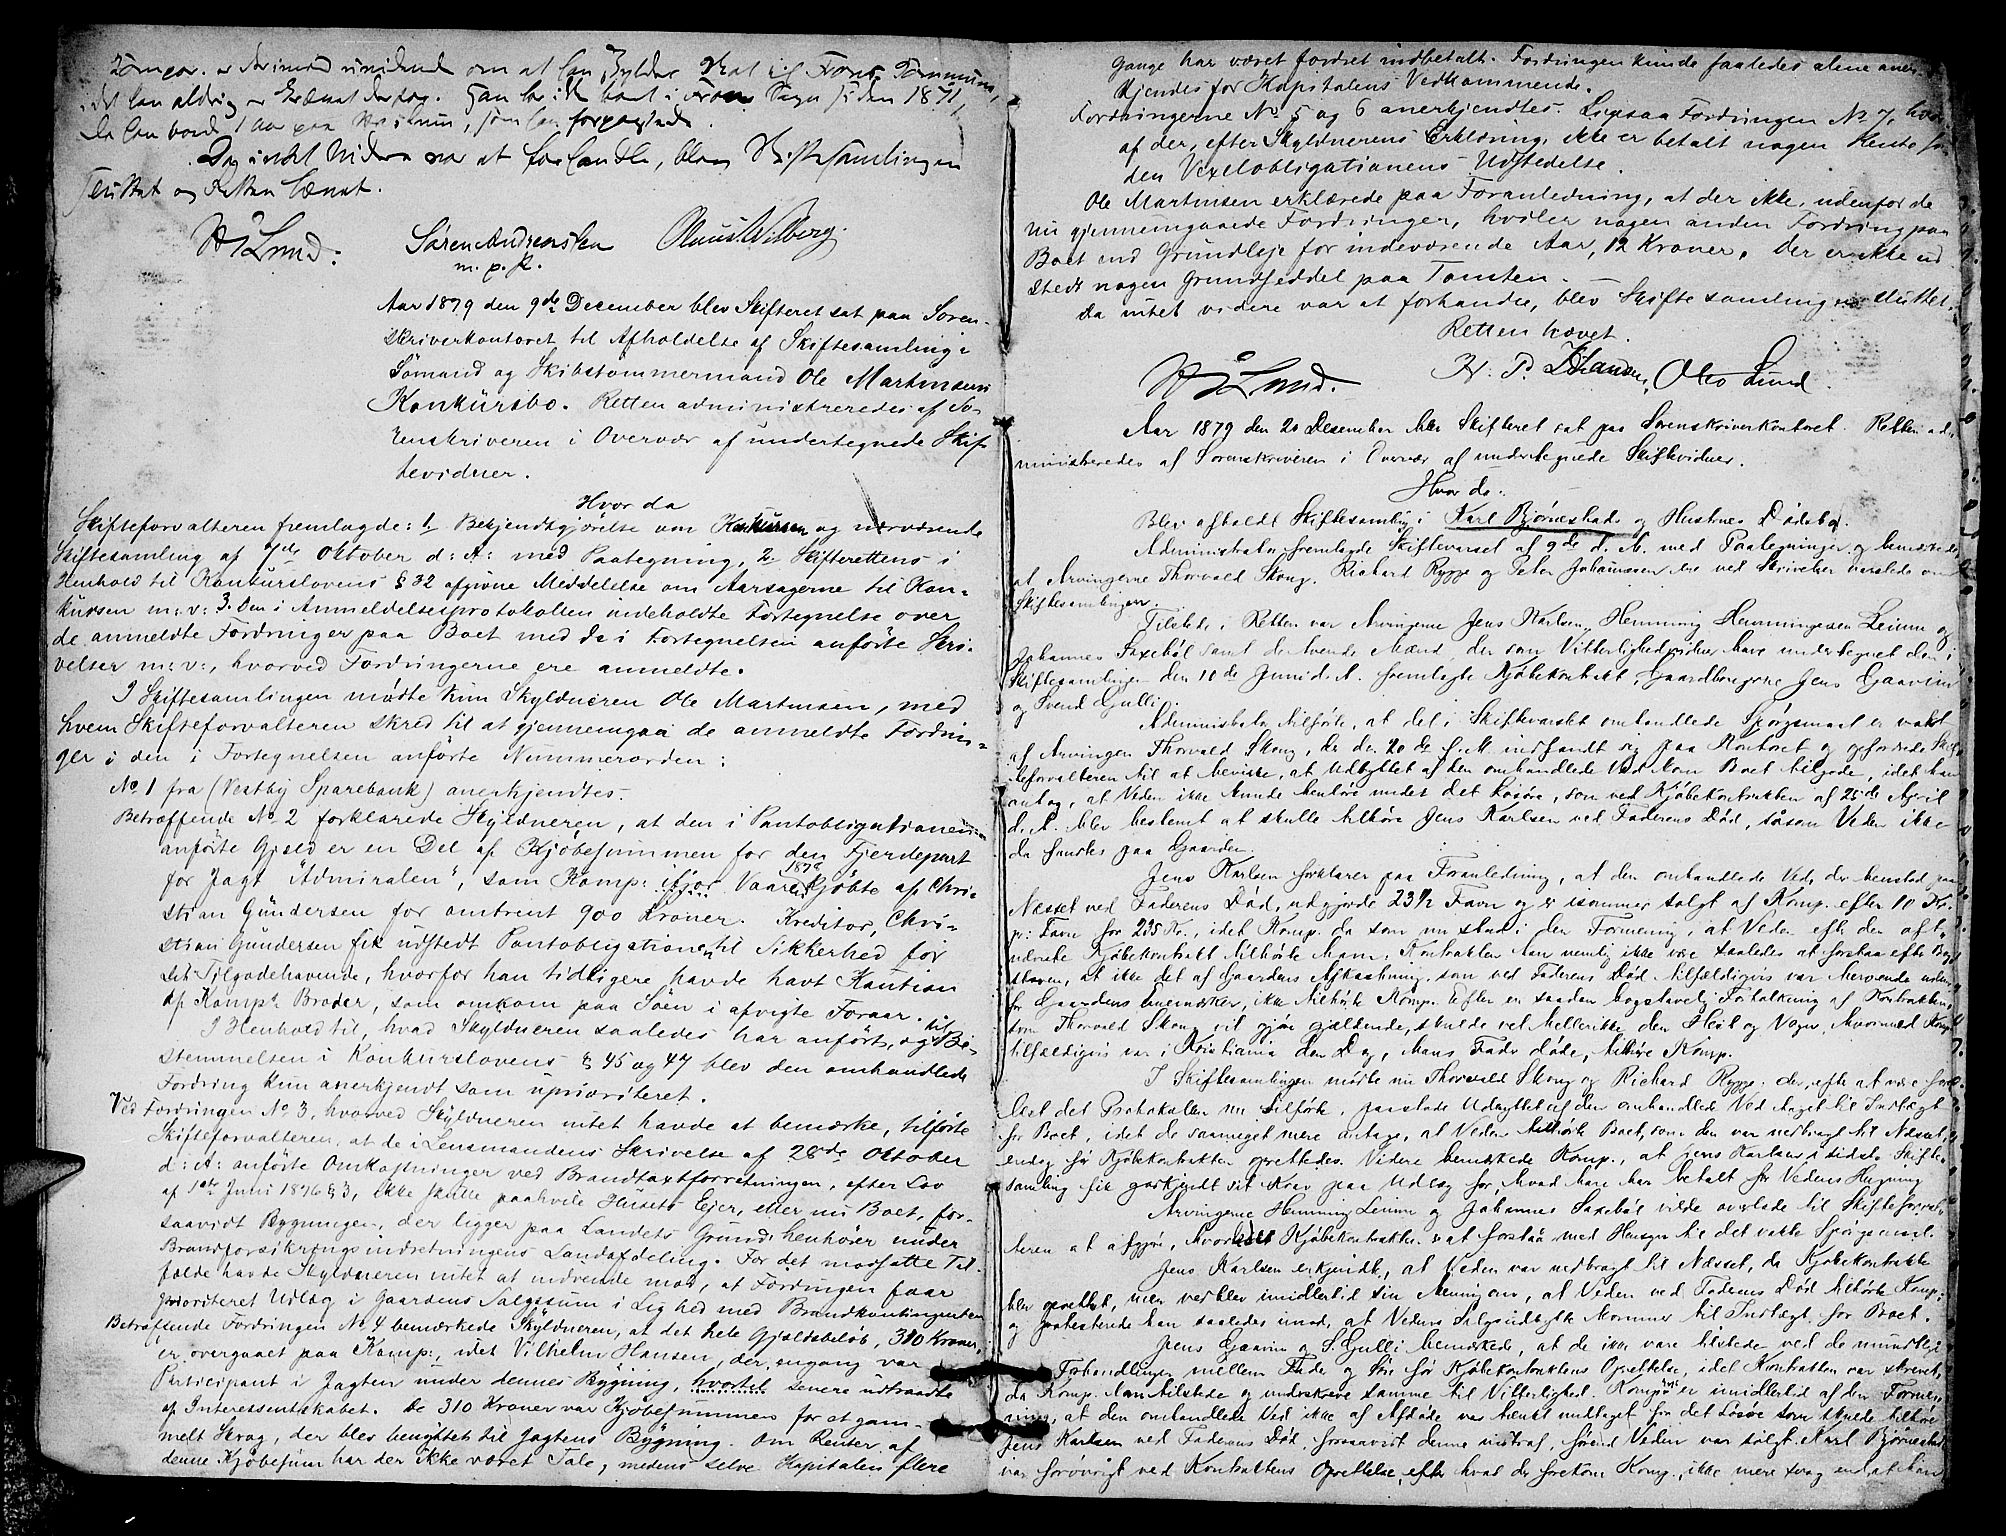 Komp. er derimod uvidende om at han skylder Skat til Fron Kommune,
idet han aldrig er krævet derfor. Han har ikke boet i Fron Sogn siden 1871,
da han boede 1 Aar paa, som han forpagtede.
Da intet videre var at forhandle, blev Skiftesamlingen
sluttet og Retten hævet.
H Lund. Søren Andersen Olaus Wilberg.
m. p. P.
Aar 1879 den 9de December blev Skifteret sat paa Soren-
skriverkontoret til Afholdelse af Skiftesamling i
Sømand og Skibstømmermand Ole Martinsens
Konkursbo. Retten administreredes af So-
renskriveren i Overvær af undertegnede Skif-
tevidner.
Hvor da
Skifteforvalteren fremlagde: 1. Bekjendtgjørelse om Konkursen og nærværende
Skiftesamling af 7de Oktober d: A: med Paategning, 2. Skifterettens i
Henhold til Konkurslovens § 32 afgivne Meddelelse om Aarsagerne til Kon-
kursen m: v: 3. Den i Anmeldelsesprotokollen indeholdte Fortegnelse over
de anmeldte Fordringer paa Boet med de i Fortegnelsen anførte Skri-
velser m: v:, hvorved Fordringerne ere anmeldte.
I Skiftesamlingen mødte kun Skyldneren Ole Martinsen, med
hvem Skifteforvalteren skred til at gjennemgaa de anmeldte Fordrin-
ger i den i Fortegnelsen anførte Nummerorden:
No 1 fra (Vestby Sparebank) anerkjendtes.
Betræffende No 2 forklarede Skyldneren, at den i Pantobligationen
anførte Gjeld er en Del af Kjøbesummen for den Fjerdepart
for Jagt "Admiralen", som Komp: ifjor Vaares kjøbte af Chri-
1878
stian Gundersen for omtrent 900 Kroner. Kreditor, Chri-
stian Gundersen fik udstedt Pantobligationen til Sikkerhed for
det Tilgodehavende, hvorfor han tidligere havde havt Kaution
af Kompts Broder, som omkom paa Søen i afvigte Foraar.
I Henhold til, hvad Skyldneren saaledes har anført, og til Be-
stemmelsen i Konkurslovens § 45 og 47 blev den omhandlede
Fordring kun anerkjendt som uprioriteret.
Ved Fordringen No 3, hvorved Skyldneren intet havde at bemærke, tilførte
Skifteforvalteren, at de i Lensmandens Skrivelse af 28de Oktober
d: A: anførte Omkostninger ved Brandtaxtforretningen, efter Lov
af 1ste Juni 1876 § 3, ikke skulle paahvile Husets Ejer, eller nu Boet, for-
saavidt Bygningen, der ligger paa Landets Grund, henhører under
Brandforsikringsindretningens Landafdeling. For det modsatte Til-
fælde havde Skyldneren intet at indvende mod, at Fordringen faar
prioriteret Udlæg i Gaardens Salgssum i Lighed med Brandkontingenten
Betræffende Fordringen No 4 bemærkede Skyldneren, at det hele Gjældsbeløb, 310 Kroner,
er overgaaet paa Komp:, idet Vilhelm Hansen, der engang var
Participant i Jagten under dennes Bygning, hvortil senere udtraadte
af Interessentskabet. De 310 Kroner var Kjøbesummen for et gam-
melt Skrog, der blev benyttet til Jagtens Bygning. Om Renter af
denne Kjøbesum har der ikke været Tale, medens selve Kapitalen flere
Gange har været fordret indbetalt. Fordringen kunde saaledes alene aner-
kjendes for Kapitalens Vedkommende.
Fordringerne No 5 og 6 anerkjendtes. Ligesaa Fordringen No 7, hvor-
af der, efter Skyldnerens Erklæring, ikke er betalt nogen Rente for
den Vexelobligationens Udstedelse.
Ole Martinsen erklærede paa Foranledning, at der ikke, udenfor de
nu gjennemgaaede Fordringer, hviler nogen anden Fordring paa
Boet end Grundleje for indeværende Aar, 12 Kroner. Der er ikke ud-
stedt nogen Grundseddel paa Tomten.
Da intet videre var at forhandle, blev Skiftesamlingen sluttet.
Retten hævet.
H Lund. H. P. Hansen, Oles Lund.
Aar 1879 den 20 Desember blev Skifteret sat paa Sorenskriverkontoret. Retten ad-
ministreredes af Sorenskriveren i Overvær af undertegnede Skiftevidner.
Hvor da:
Blev afholdt Skiftesamling i Karl Bjørnestads og Hustrues Dødsbo.
Administrator fremlagde Skiftevarsel af 9de d. M. med Paategninger og bemærkede
at Arvingerne Thorvald Skoug, Richard Rygge og Peter Johannessen ere ved Skrivelser varslede om
Skiftesamlingen.
Tilstede i Retten var Arvingerne Jens Karlsen, Hemming Hemmingssen Leium og
Johannes Saxebøl samt de tvende Mænd, der som Vitterlighedsvidner have undertegnet den i
Skiftesamlingen den 10de Juni d. A. fremlagte Kjøbekontrakt, Gaardbrugerne Jens Gaavim
og Svend Gulli.
Administrator tilførte, at det i Skiftevarslet omhandlede Spørgsmaal er vakt
af Arvingen Thorvald Skoug, der den 20de f. M. indfandt sig paa Kontoret og opfordrede Skif-
teforvalteren til at bevirke, at Udbyttet af den omhandlede Ved kom Boet tilgode, idet han
antog, at Veden ikke kunde henhøre under det Løsøre, som ved Kjøbekontrakten af 25de April
d. A. blev bestemt at skulle tilhøre Jens Karlsen ved Faderens Død, saasom Veden ikke
da fandtes paa Gaarden.
Jens Karlsen forklarer paa Foranledning, at den omhandlede Ved, der henstod paa
Næsset ved Faderens Død, udgjorde 23½ Favn og er isommer solgt af Komp. efter 10 Kr.
pr: Favn for 235 Kr., idet Komp. da som nu stod i den Formening, at Veden efter den oft-
nævnte Kjøbekontrakt tilhørte ham. Kontrakten kan nemlig ikke være saaledes at forstaa efter Bog-
staven, at ikke det af Gaardens Afkastning, som ved Faderens Død tilfældigvis var henværende uden-
for Gaardens Enemærker, ikke tilhørte Komp. Efter en saadan bogstavelig Fortolkning af Kontrakten,
som Thorvald Skoug vil gjøre gjældende, skulde vel heller ikke den Hest og Vogn, hvormed Komp
tilfældigvis var i Kristiania den Dag, hans Fader døde, tilhøre Komp.
I Skiftesamlingen mødte nu Thorvald Skoug og Richard Rygge, der, efter at være fore-
læst det Protokollen nu tilførte, paastode Udbyttet af den omhandlede Ved taget til Indtægt
for Boet, idet de saameget mere antage, at Veden tilhørte Boet, som den var nedbragt til Næsset,
endog før Kjøbekontrakten oprettedes. Videre bemærkede Komp., at Jens Karlsen i sidste Skifte-
samling fik godkjendt sit Krav paa Udlæg for, hvad han har betalt for Vedens Hugning
Arvingerne Hemming Leium og Johannes Saxebøl vilde overlade til Skifteforval-
teren at afgjøre, hvorledes Kjøbekontrakten er at forstaa med Hensyn til det vakte Spørgsmaal.
Jens Karlsen erkjendte, at Veden var nedbragt til Næsset, da Kjøbekontrakten
blev oprettet, men vedblev imidlertid sin Mening om, at Veden ved Faderens Død tilhørte Komp.,
og protesterede han saaledes imod, at Vedens Salgsudbytte kommer til Indtægt for Boet.
Jens Gaavim og S. Gulli bemærkede, at de ikke vare tilstede ved de mundtlige
Forhandlinger mellem Fader og Søn før Kjøbekontraktens Oprettelse, idet Kontrakten var skrevet,
da Komp. kom tilstede og underskreve samme til Vitterlighed. Komp. er imidlertid af den Forme-
ning, at den omhandlede Ved ikke af Afdøde var tænkt undtaget fra det Løsøre som skulde tilhøre
Jens Karlsen ved Faderens Død, forsaavidt denne indtraf, førend Veden var solgt. Karl Bjørnestad
var forøvrigt ved Kontraktens Oprettelse, efter hvad der forekom Komp., ikke mere svag end at han